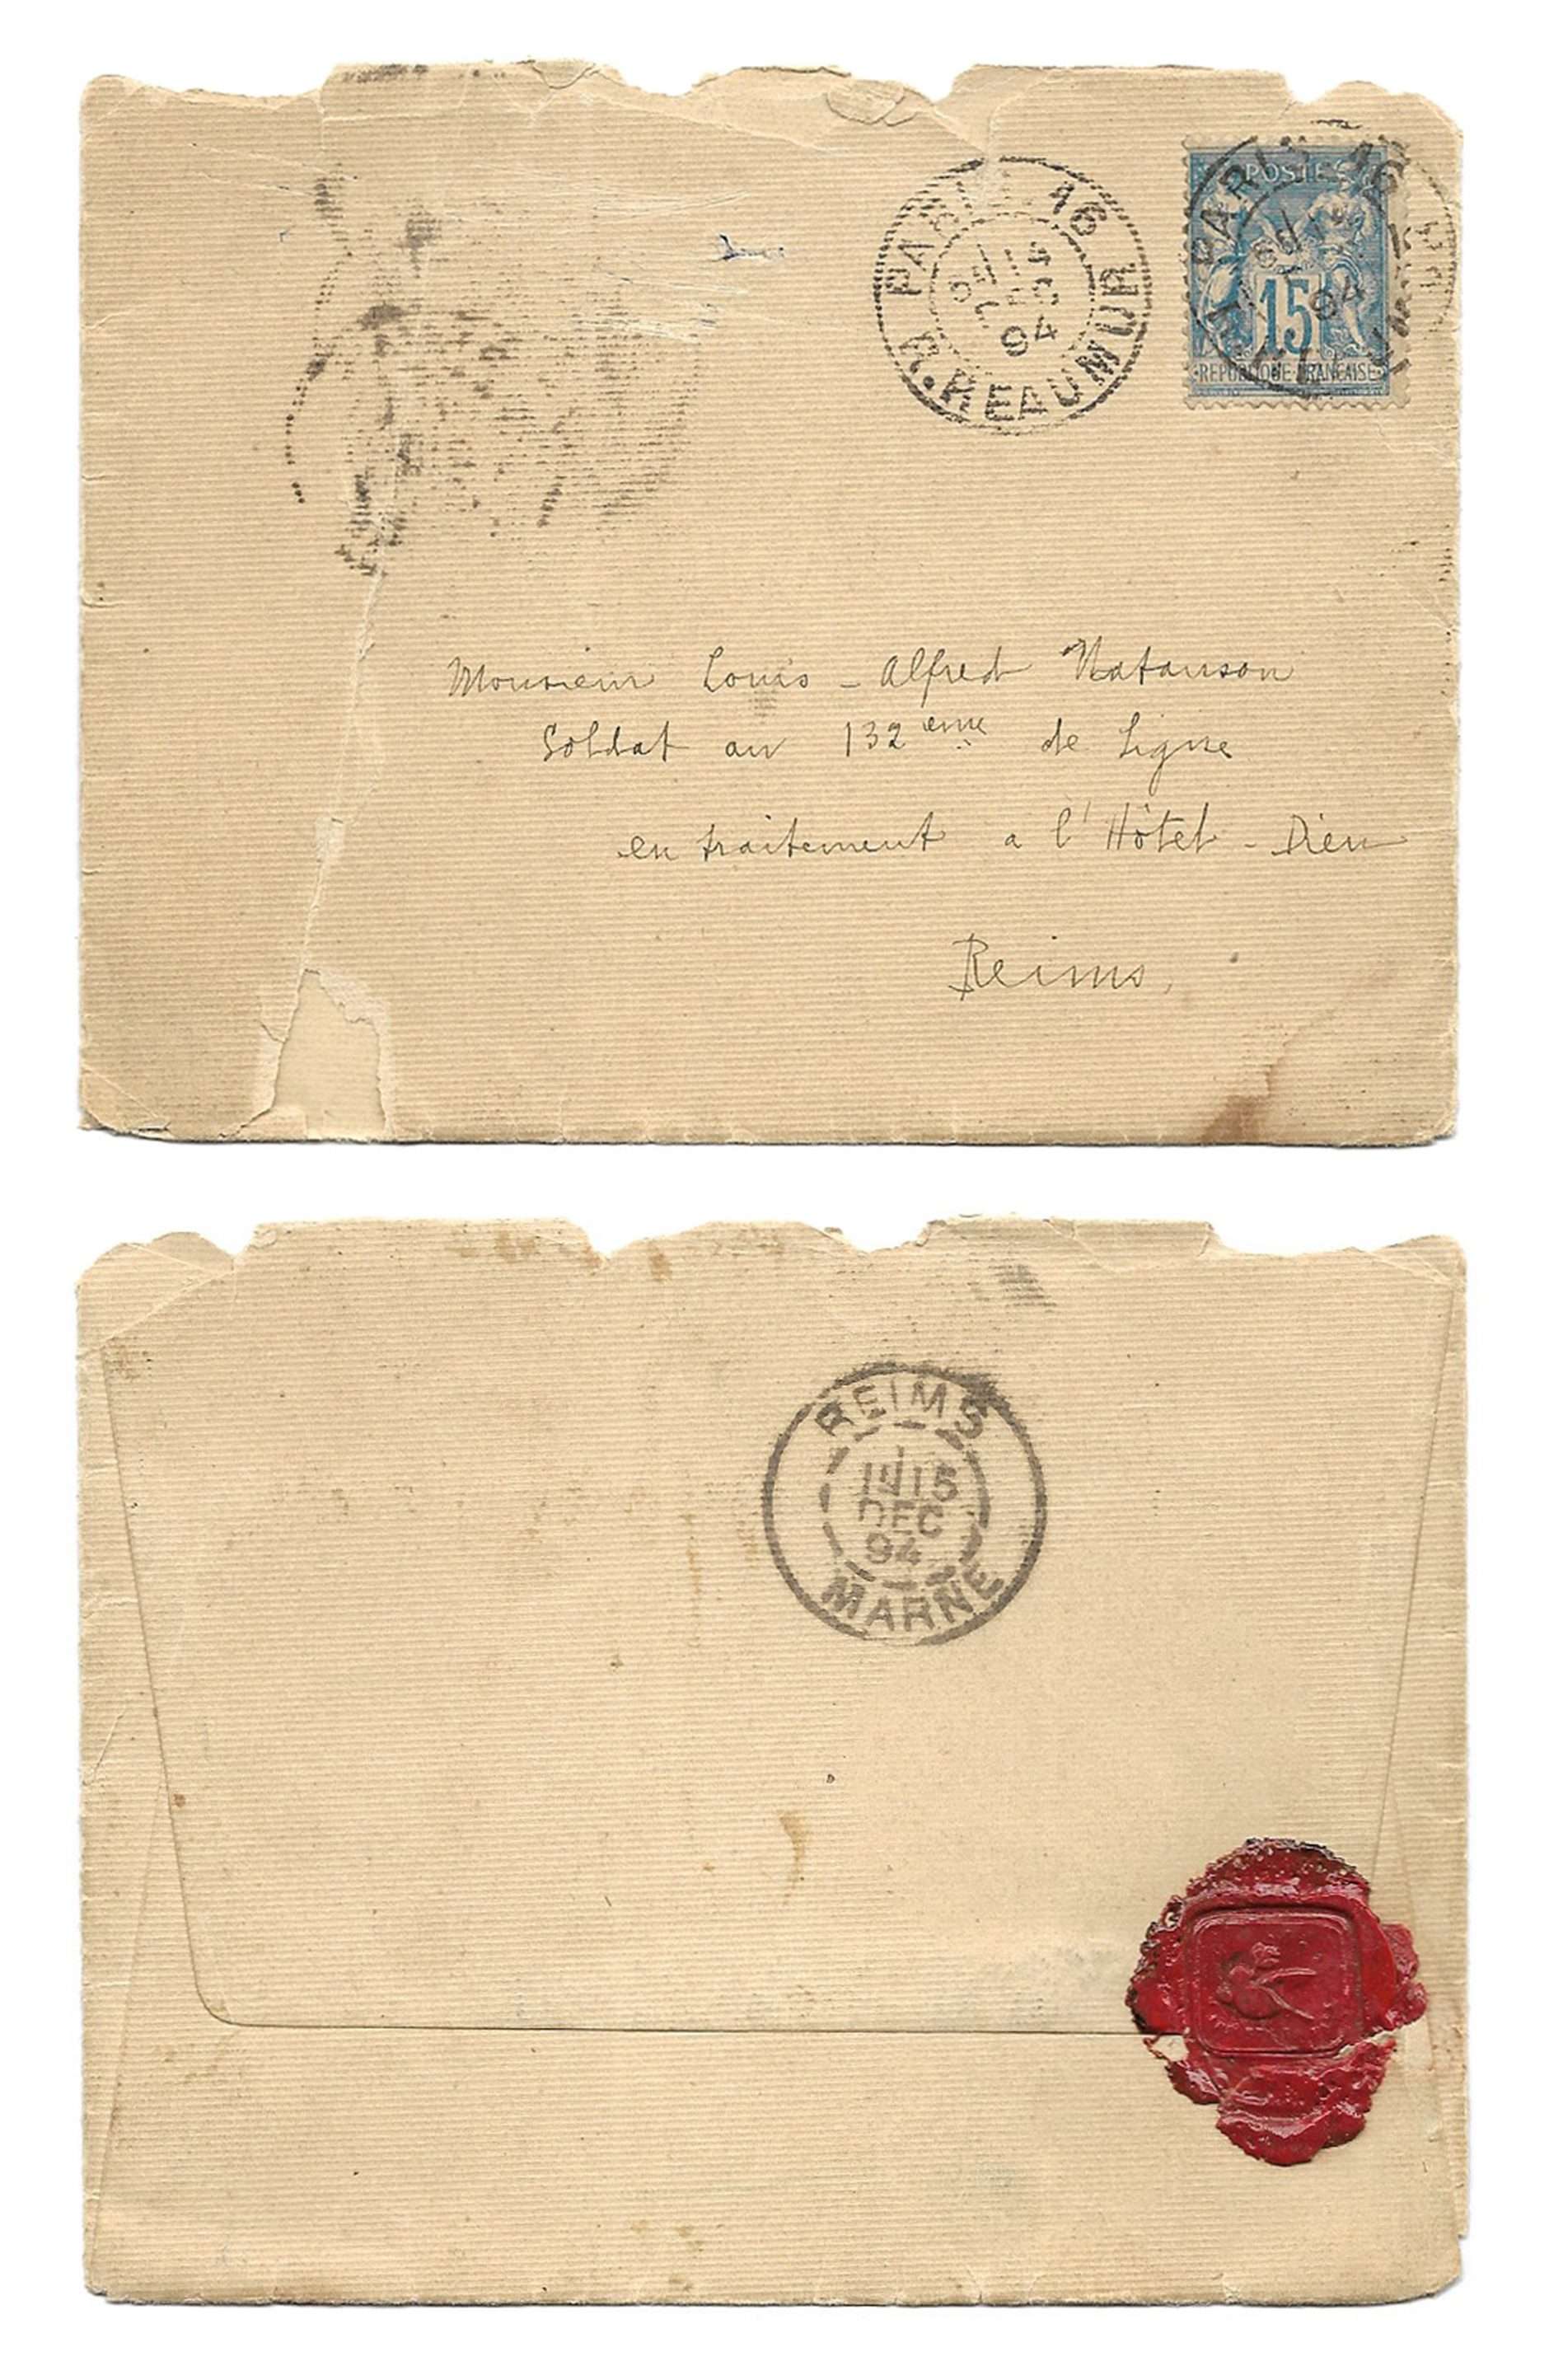 PARIS 16
R. REAUMUR
94
POSTES
15
REPUBLIQUE FRANCAISE
PARIS 16
94
Monsieur Louis-Alfred Natanson
Soldat au 132eme de Ligne
en traitement a l'Hôtel-Dieu
Reims,
REIMS
15
DEC
94
MARNE